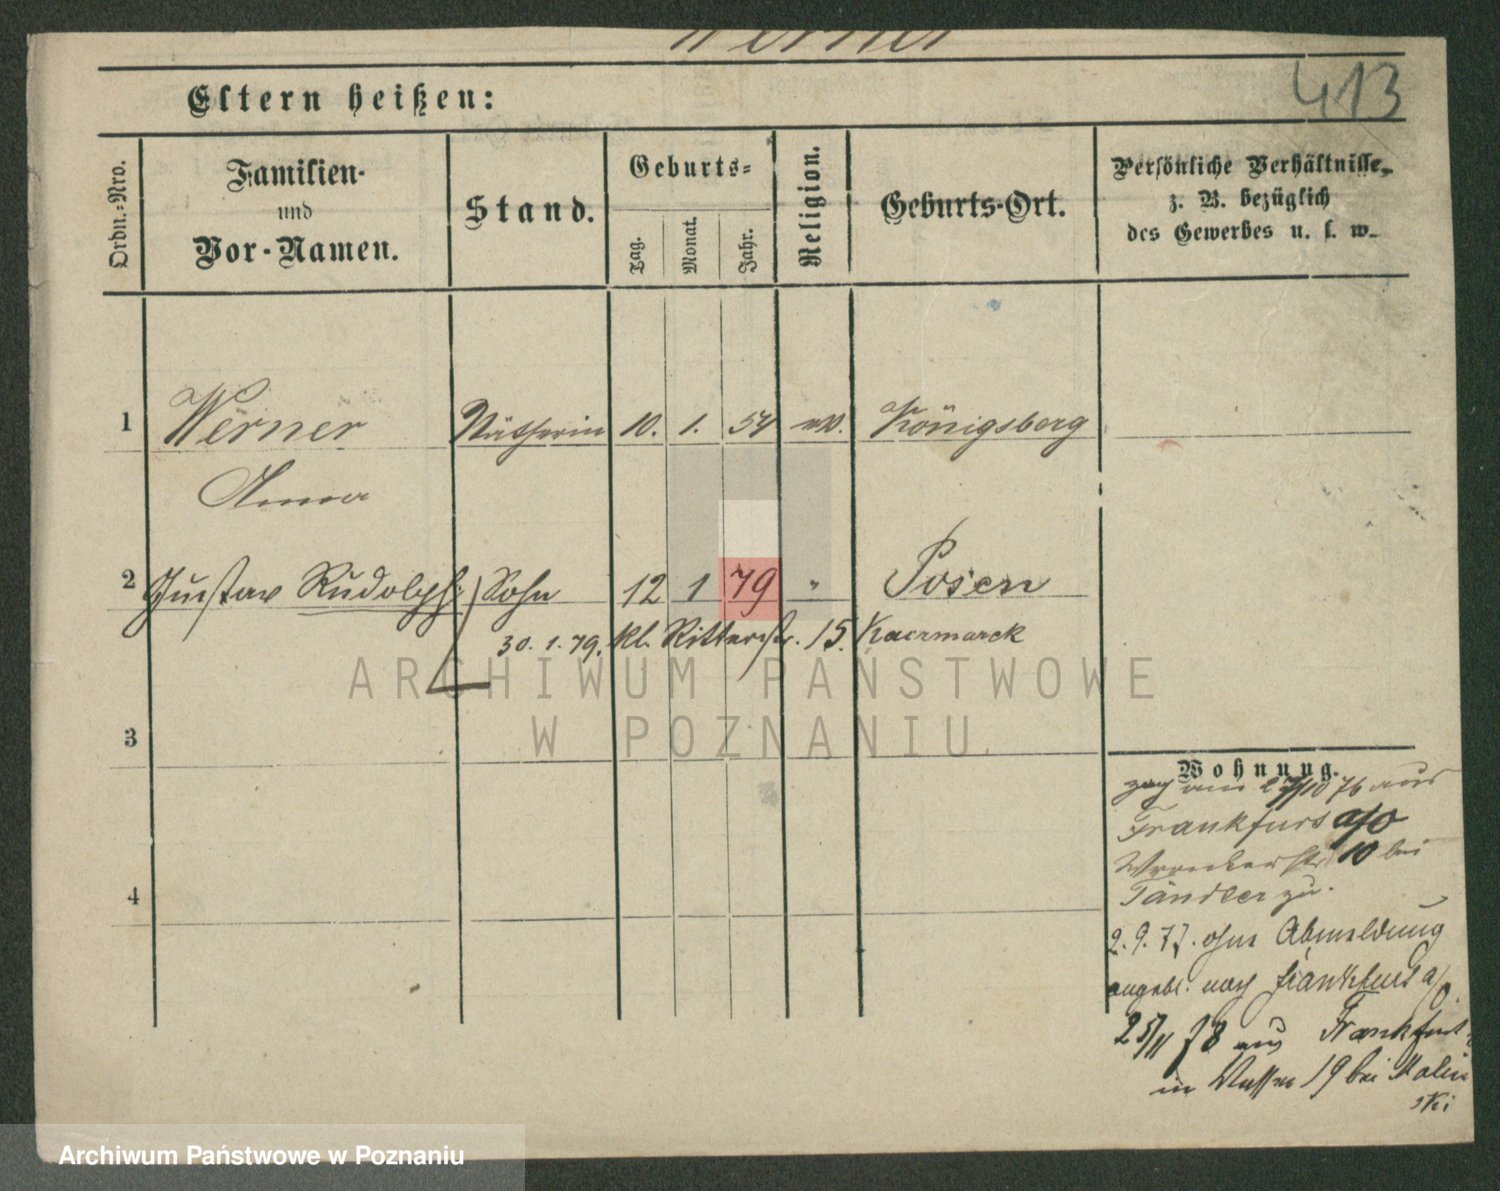 Werner
413
Eltern heißen:
Ordn.-Nro.
Familien-
und
Vor-Namen.
Stand.
Geburts-
Tag.
Monat.
Jahr.
Religion.
Geburts-Ort.
Persönliche Verhältnisse,
z. B. bezüglich
des Gewerbes u. s. w.
1 Werner Nätherin 10. 1. 54 Königsberg
Anna
2 Gustav Rudolph Sohn 12 1 79 " Posen
30. 1. 79. kl. Ritterstr. 15. Kaczmarek
ARCHIWUM PAŃSTWOWE
W POZNANIU
3
Wohnung.
zog am 27/10 76 aus
Frankfurt a/O
Wronkerstr. 10 bei
Tändler zu.
4
2. 9. 77. ohne Abmeldung
angebl. nach Frankfurt a/O.
25/11 78 aus Frankfurt
in Wasser 19 bei Malin
ski
Archiwum Państwowe w Poznaniu